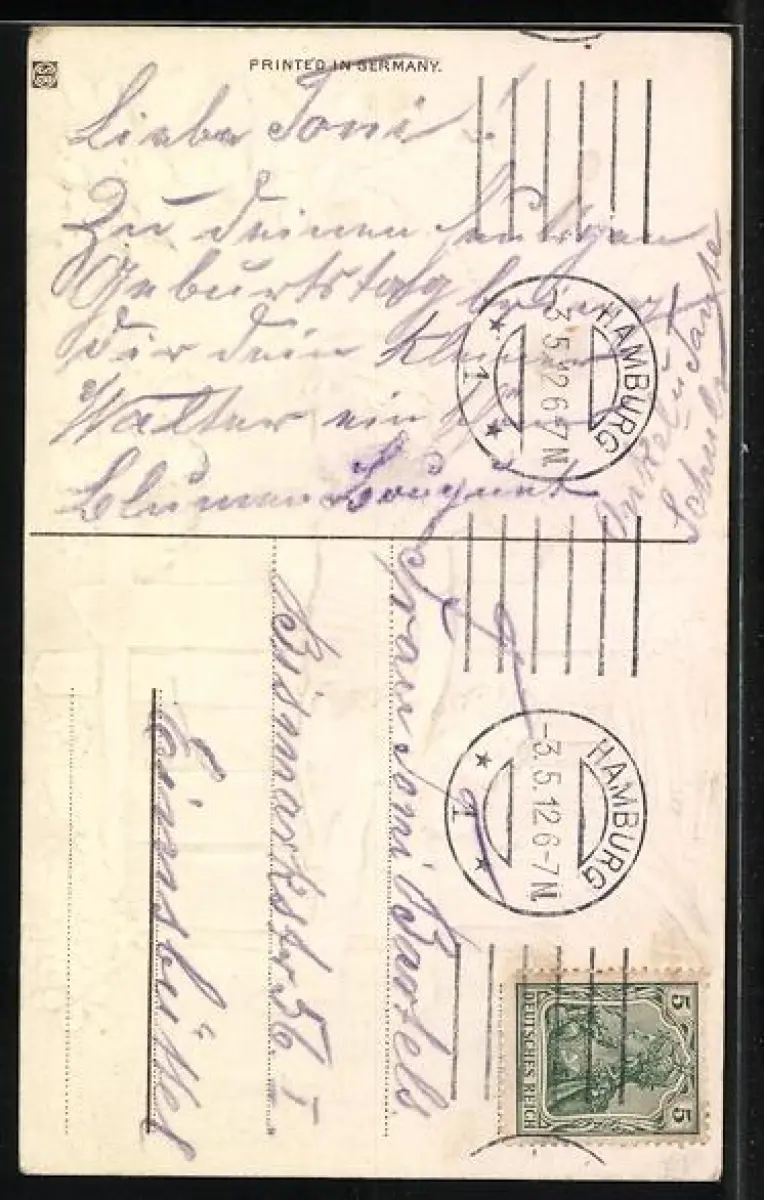 PRINTED IN GERMANY.
Liebe Toni!
Zu deinen heutigen
Geburtstag bringt
dir dein kleiner
Walter ein
Blumen Bouquet
Onkel u Tante
Schulz
Frau Toni Bartels
Bismarkstr 56 I
Eimsbüttel
HAMBURG
-3.5.12 6-7 N
1
HAMBURG
-3.5.12 6-7 N
1
5 5
DEUTSCHES REICH